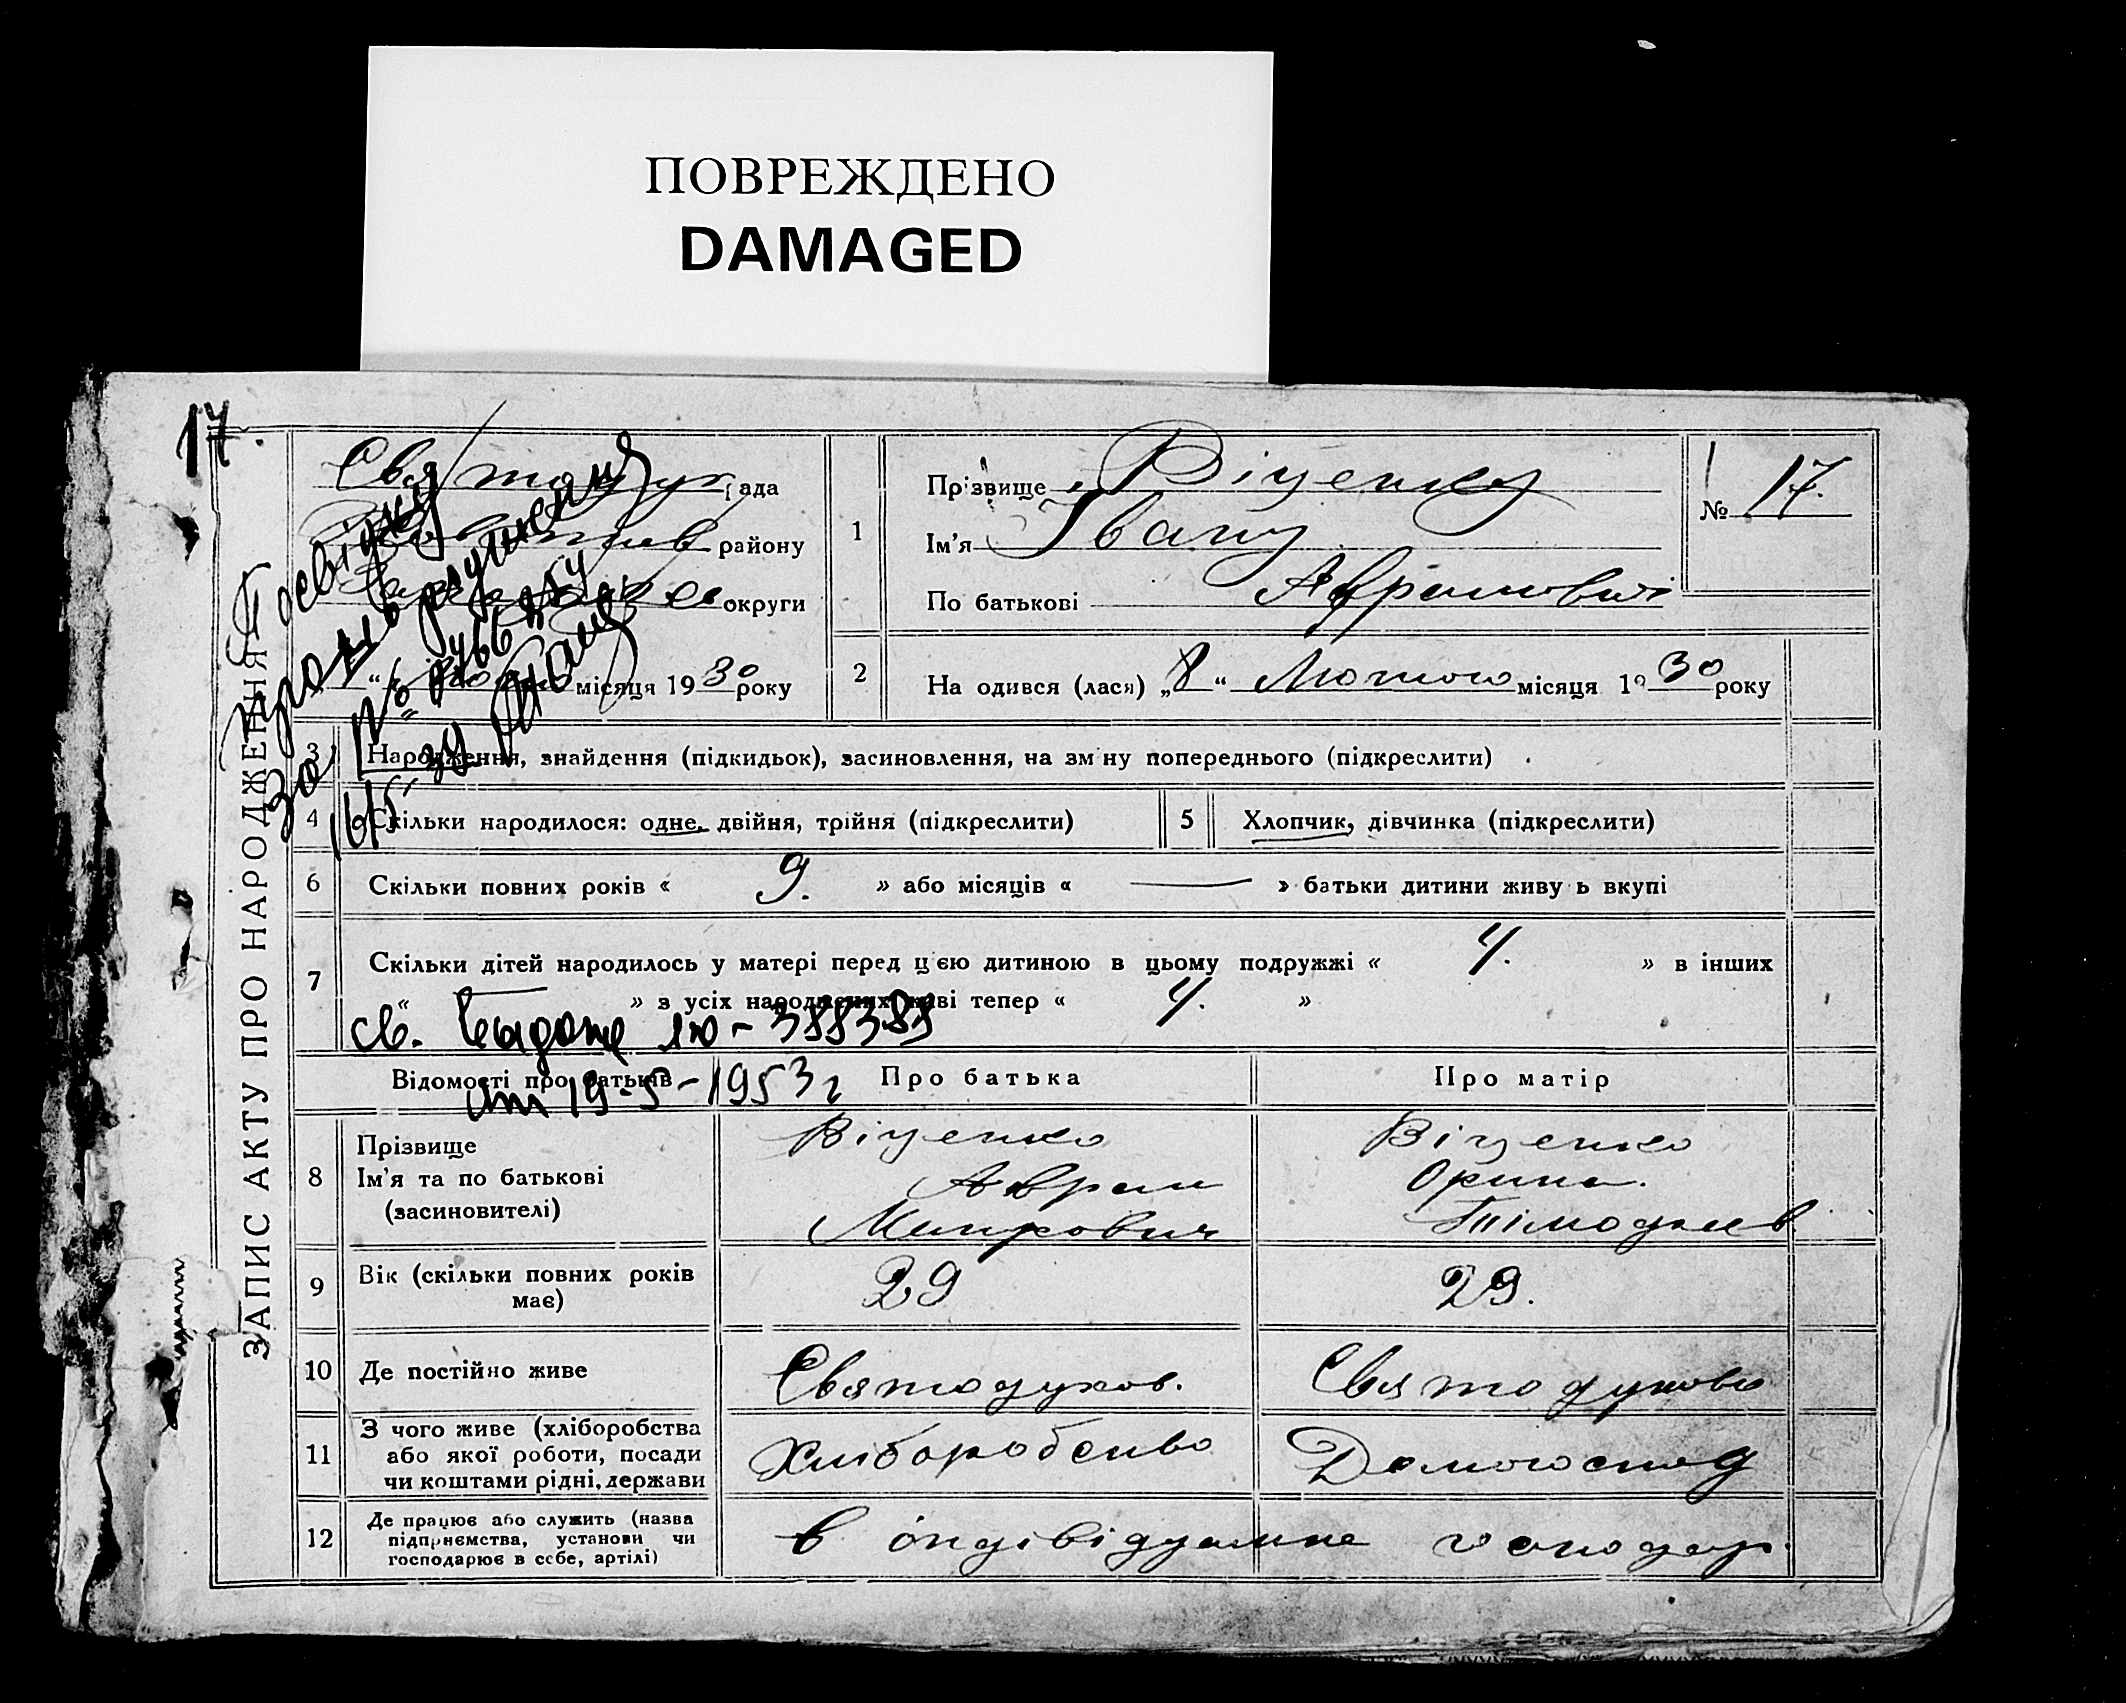 ПОВРЕЖДЕНО
DAMAGED
17.
ЗАПИС АКТУ ПРО НАРОДЖЕННЯ
рада
району
округи
місяця 1930 року
1
Прізвище Віценко
Ім'я Івану
По батькові Аврамович
№ 17.
2
На одився (лася) „8“ Лютого місяця 1930 року
3
Народження, знайдення (підкидьок), засиновлення, на зм ну попереднього (підкреслити)
4
Скільки народилося: одне, двійня, трійня (підкреслити)
5
Хлопчик, дівчинка (підкреслити)
6
Скільки повних років « 9. » або місяців « — » батьки дитини живу ь вкупі
7
Скільки дітей народилось у матері перед ц єю дитиною в цьому подружжі « 4. » в інших
« — » з усіх народжених живі тепер « 4. »
св. выдано
19-5-1953 г
Відомості про батьків
Про батька
Про матір
8
Прізвище
Ім'я та по батькові
(засиновителі)
Віценко
Аврам
Віценко
Орина.
9
Вік (скільки повних років
має)
29
29.
10
Де постійно живе
Святодухов.
Святодухово
11
З чого живе (хліборобства
або якої роботи, посади
чи коштами рідні, держави
Хліборобство
Домогоспод
12
Де працює або служить (назва
підприємства, установи чи
господарює в себе, артілі)
в індівідуальне господар.